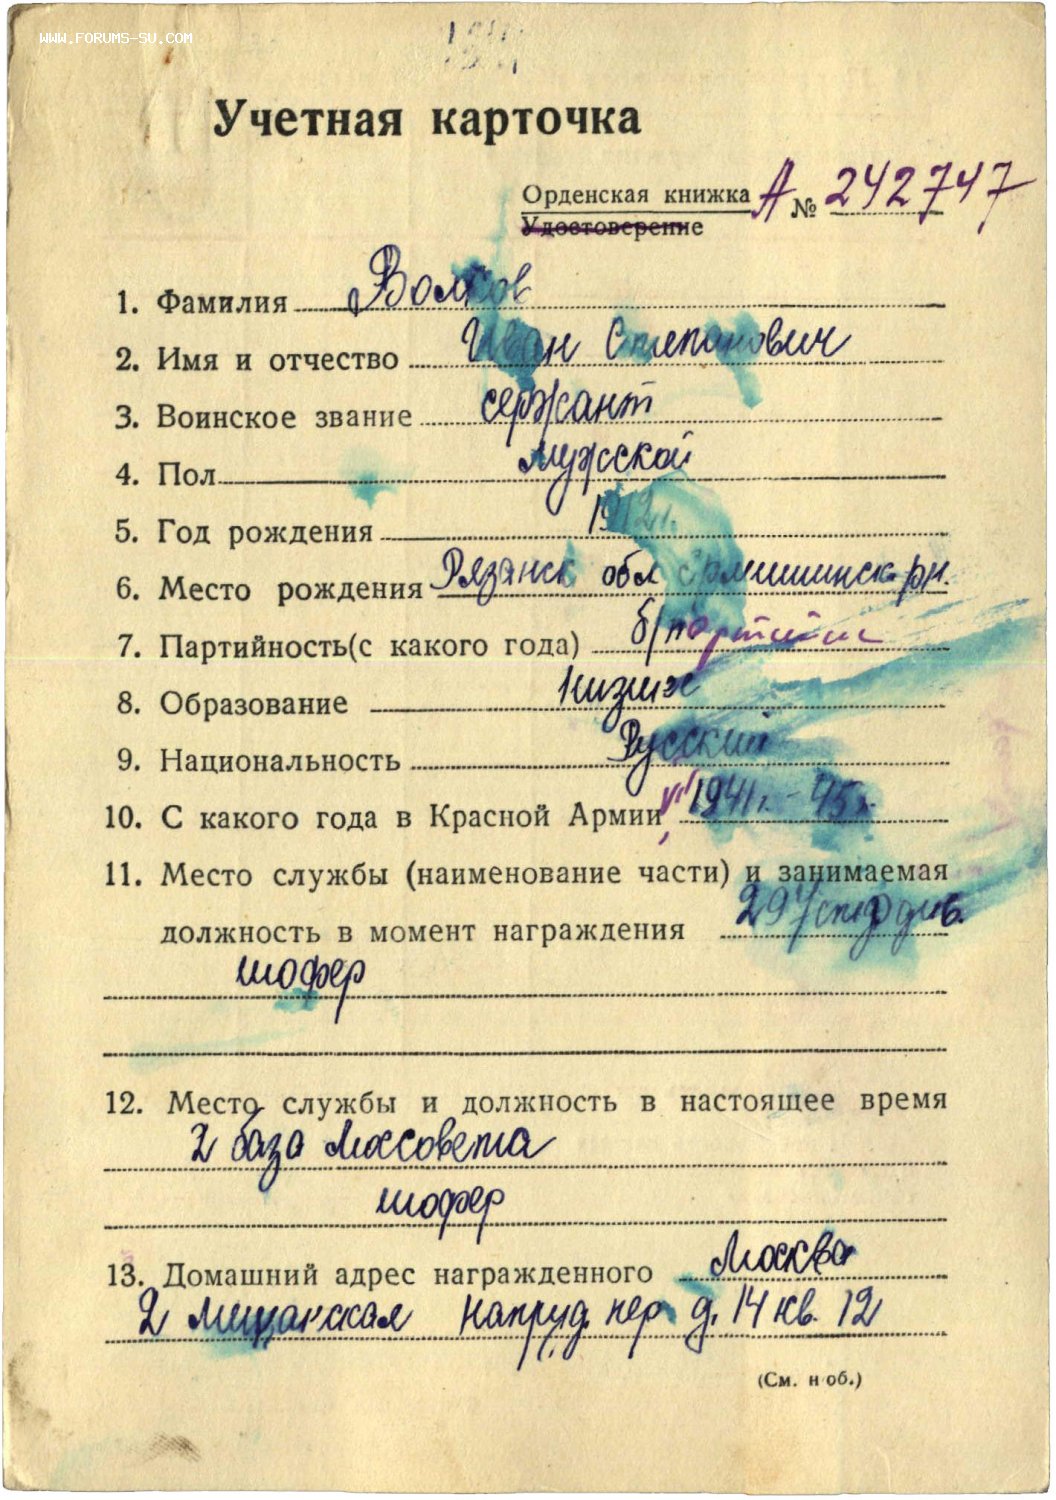 WWW.FORUMS-SU.COM
Учетная карточка
Орденская книжка А № 242747
Удостоверение
1. Фамилия Волков
2. Имя и отчество Иван Степанович
3. Воинское звание сержант
4. Пол мужской
5. Год рождения 1912 г.
6. Место рождения Рязанск обл Ермишинск. рн.
7. Партийность(с какого года) б/партийн
8. Образование низшее
9. Национальность Русский
10. С какого года в Красной Армии, VII 1941 г. - 45 г.
11. Место службы (наименование части) и занимаемая
должность в момент награждения 297 стр див.
шофер
12. Место службы и должность в настоящее время
2 база Моссовета
шофер
13. Домашний адрес награжденного Москва
2 Мещанская Напруд. пер д. 14 кв. 12
(См. н об.)